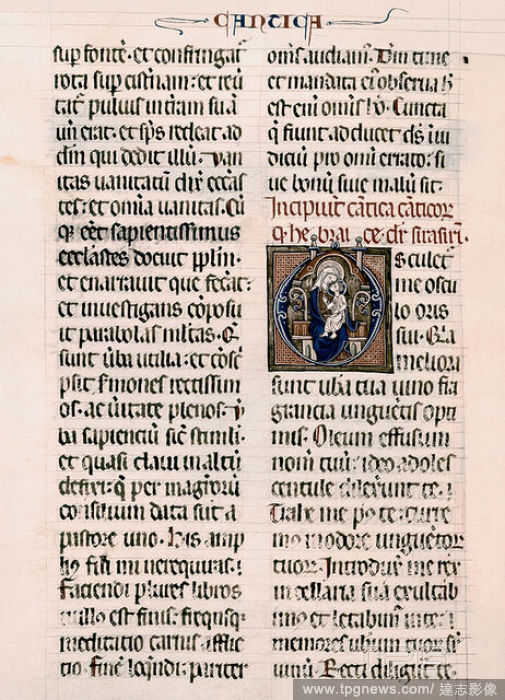 CANTICA
sup fontē. et confringat̄
rota sup cisternam: et reū
tat̄ puluis in t̄ram suā
un̄ erat. et sp̄s redeat ad
dm̄ qui dedit illū. Van
itas uanitatū dix̄ eccl̄as
tes: et om̄ia uanitas. Cū
q̄ eēt sapientissimus
ecclastes docuit pplm̄.
et enarrauit que fecāt:
et inuestigans cōposu
it parabolas mltas. Q̄
siuit ūba utilia: et cōsc̄
psit s̄mones rectissim
os. ac ūitate plenos. V̄
ba sapienciū sic̄ stimli.
et quasi claui in altū
defixi: q̄ per magr̄orū
consilium data sūt a
pastore uno. His amp
liꝰ fili mi ne requiras.
Faciendi plures libros
nullꝰ est finis: freq̄nsq̨
meditatio carnis afflic
tio. Finē loq̄ndi pariter
om̄s audiam̄. Dm̄ time
et mandata eiꝰ obserua hͦ
est eni om̄is hō. Cuncta
q̄ fiunt adducet ds̄ in iu
diciū pro om̄i errato: si
ue bonū siue malū sit.
Incipiūt cātica cāticoꝝ
q̄ hebraice dr̄ sirasirī.
Osculet̄
me oscu
lo oris
sui. Q̄ia
meliora
sunt ubā tua uino fra
grancia unguētis opti
mis. Oleum effusum
nom̄ tuū: ideo adoles
centule dilexerunt te.
Trahe me po te: curre
mꝰ in odore unguētoꝝ
tuoꝝ. Introduxͭ me rex
in cellaria sua exultabi
mꝰ et letabimͬ in te:
memores ubeꝝ tuoꝝ suꝑ
uinū. Recti diligūt te.
www.tpgnews.com / 達志影像